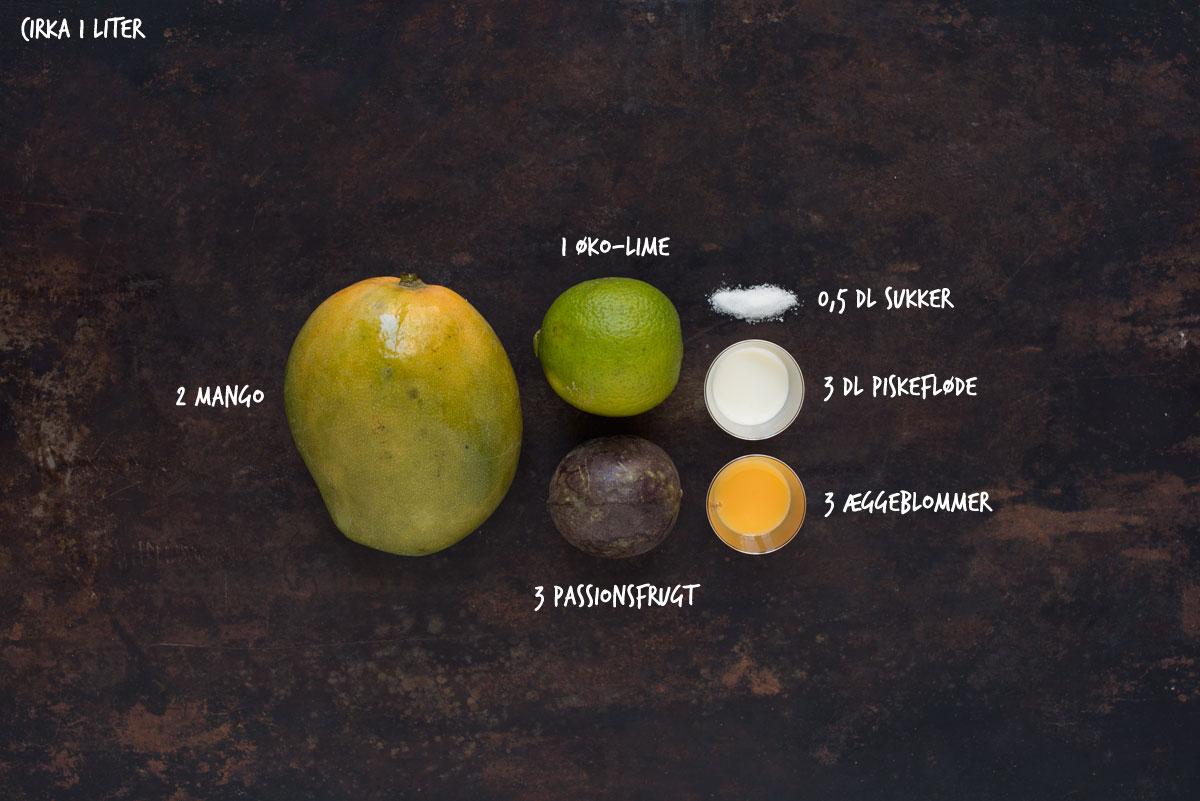 CIRKA 1 LITER
1 ØKO-LIME
0,5 DL SUKKER
2 MANGO
3 DL PISKEFLØDE
3 ÆGGEBLOMMER
3 PASSIONSFRUGT